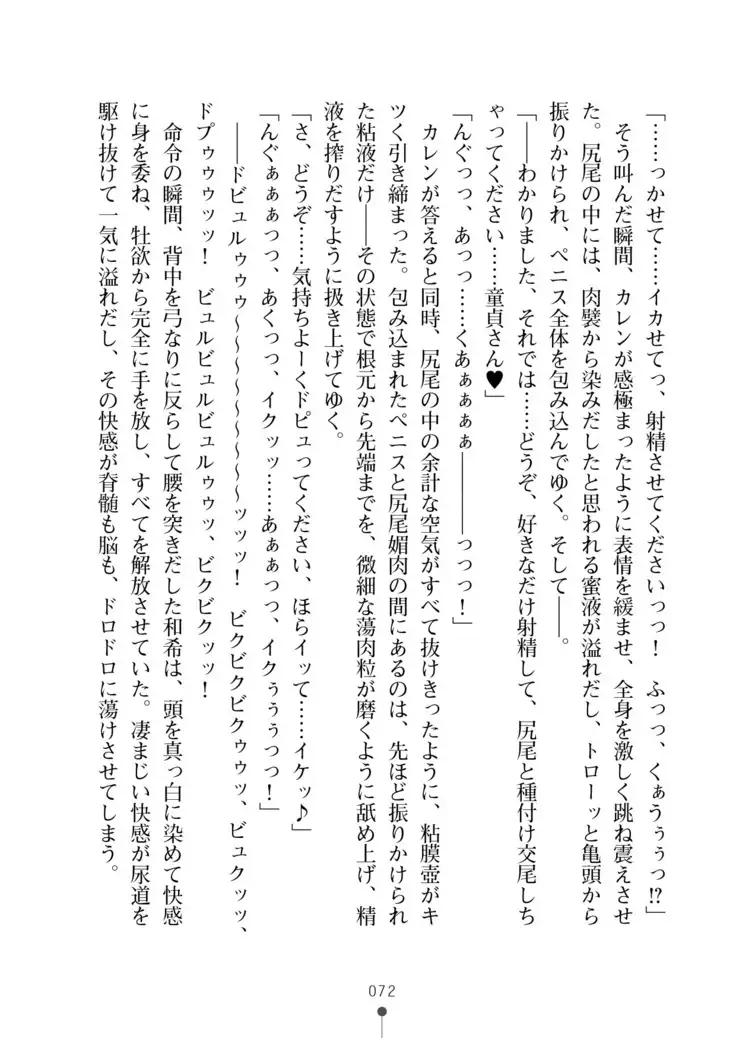 「……っかせて……イカせてっ、射精させてくださいっっ！　ふっっ、くぁうぅぅっ!?」
　そう叫んだ瞬間、カレンが感極まったように表情を緩ませ、全身を激しく跳ね震えさせ
た。尻尾の中には、肉襞から染みだしたと思われる蜜液が溢れだし、トローッと亀頭から
振りかけられ、ペニス全体を包み込んでゆく。そして――。
「――わかりました、それでは……どうぞ、好きなだけ射精して、尻尾と種付け交尾しち
ゃってください……童貞さん♥」
「んぐっっ、あっっ……くあぁぁぁぁ――――っっっ！」
　カレンが答えると同時、尻尾の中の余計な空気がすべて抜けきったように、粘膜壺がキ
ツく引き締まった。包み込まれたペニスと尻尾媚肉の間にあるのは、先ほど振りかけられ
た粘液だけ――その状態で根元から先端までを、微細な蕩肉粒が磨くように舐め上げ、精
液を搾りだすように扱き上げてゆく。
「さ、どうぞ……気持ちよーくドピュってください、ほらイッて……イケッ♪」
「んぐぁぁぁっっ、あくっっ、イクッッ……あぁぁっっ、イクぅぅぅっっ！」
　――ドビュルゥゥゥ～～～～～～～～ッッッ！　ビクビクビクゥゥッ、ビュクッッ、
ドプゥゥゥッッ！　ビュルビュルビュルゥゥッ、ビクビクッッ！
　命令の瞬間、背中を弓なりに反らして腰を突きだした和希は、頭を真っ白に染めて快感
に身を委ね、牡欲から完全に手を放し、すべてを解放させていた。凄まじい快感が尿道を
駆け抜けて一気に溢れだし、その快感が脊髄も脳も、ドロドロに蕩けさせてしまう。
072